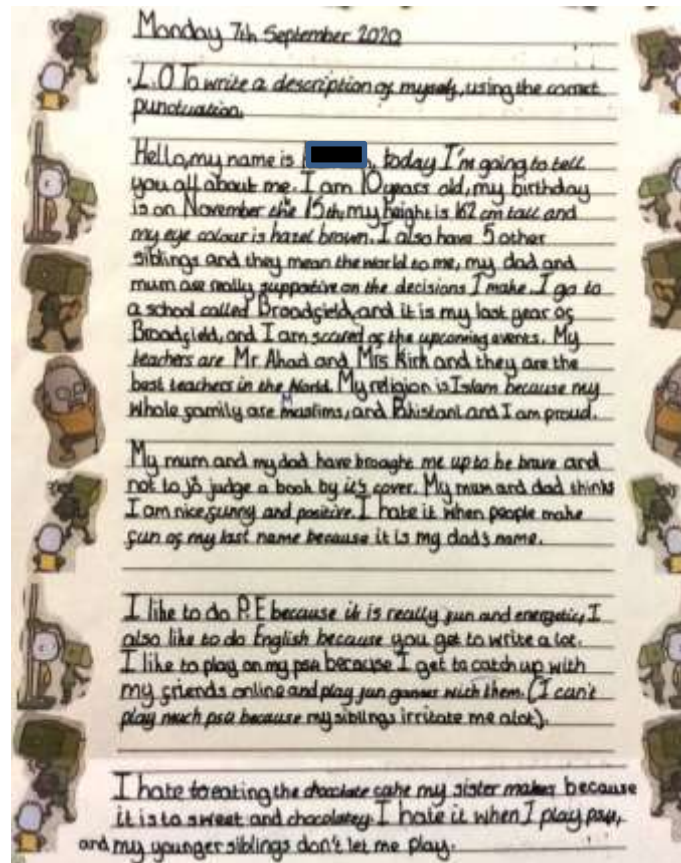 Monday 7th September 2020
L.O To write a description of myself, using the correct
punctuation.
Hello, my name is , today I'm going to tell
you all about me. I am 10 years old, my birthday
is on November the 15th, my height is 162 cm tall and
my eye colour is hazel brown. I also have 5 other
siblings and they mean the world to me, my dad and
mum are really supportive on the decisions I make. I go to
a school called Broadfield, and it is my last year of
Broadfield, and I am scared of the upcoming events. My
teachers are Mr Ahad and Mrs Kirk and they are the
best teachers in the World. My religion is Islam because my
whole family are Muslims, and Pakistani and I am proud.
My mum and my dad have brought me up to be brave and
not to jo judge a book by it's cover. My mum and dad thinks
I am nice, funny and positive. I hate it when people make
fun of my last name because it is my dad's name.
I like to do P.E because it is really fun and energetic, I
also like to do English because you get to write a lot.
I like to play on my ps4 because I get to catch up with
my friends online and play fun games with them. (I can't
play much ps4 because my siblings irritate me alot).
I hate to eating the chocolate cake my sister makes because
it is to sweet and chocolatey. I hate it when I play ps4,
and my younger siblings don't let me play.